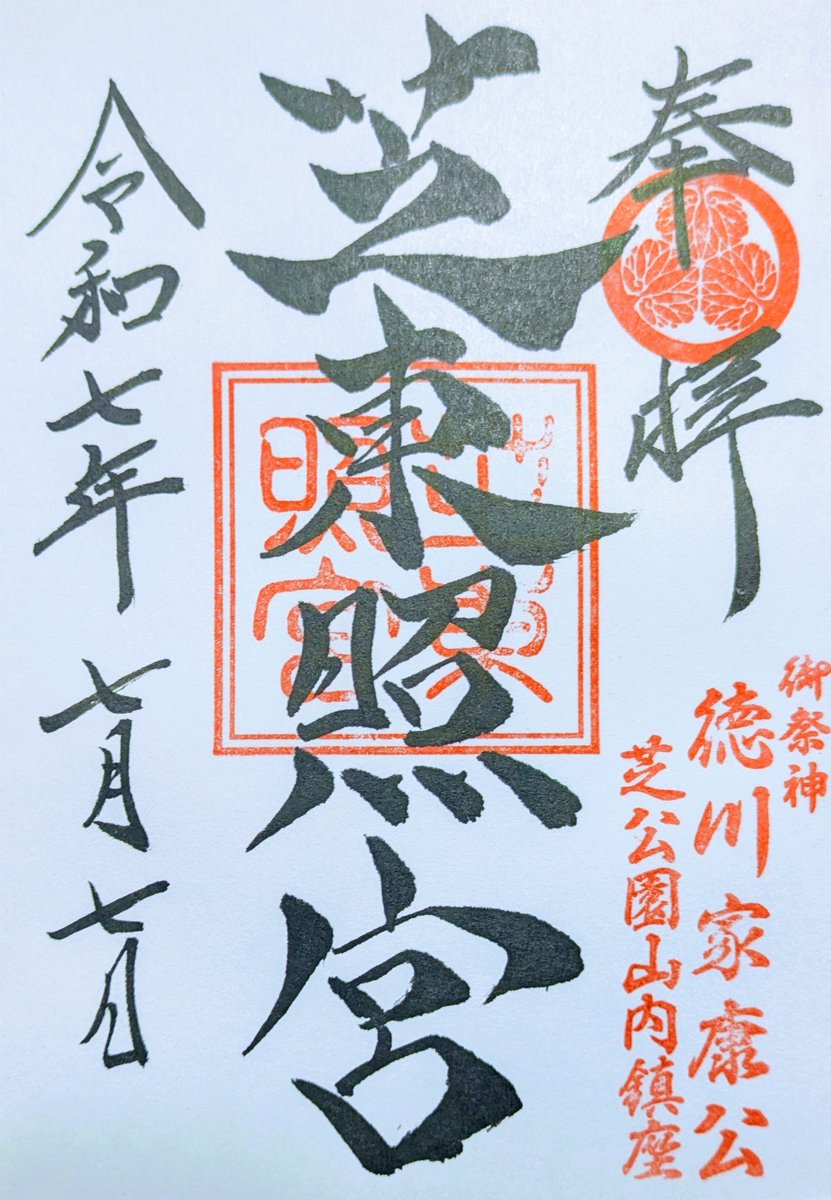 奉拝
御祭神
徳川家康公
芝公園山内鎮座
芝東照宮
芝東照宮
令和七年 七月 七日